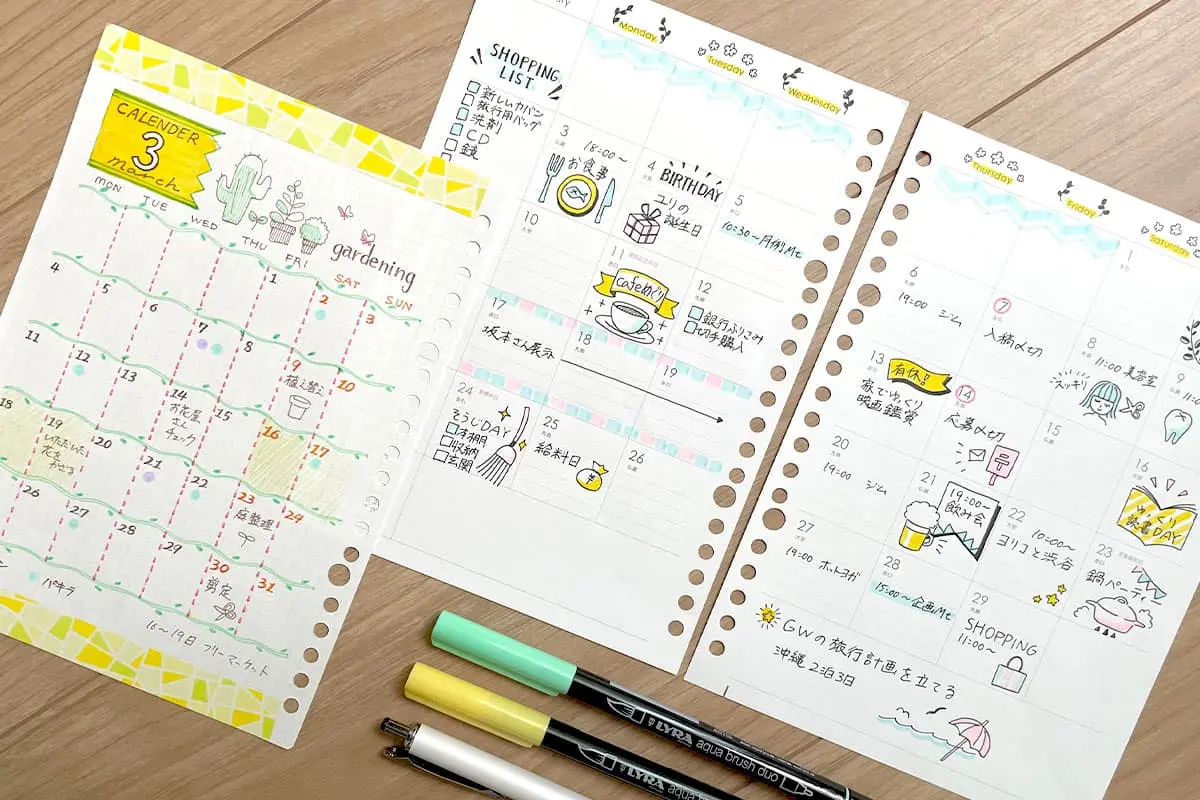 CALENDER
3
march
gardening
MON TUE WED THU FRI SAT SUN
1 2 3
4 5 6 7 8 9 10
植え替え
11 12 13 14 15 16 17
お花屋
さん
チェック
18 19 20 21 22 23 24
いただいた
花を
かざる
庭整理
26 27 28 29 30 31
剪定
パキラ
16〜19日 フリーマーケット
SHOPPING
LIST
新しいカバン
旅行用バッグ
洗剤
CD
鏡
Monday Tuesday Wednesday
3
18:00〜
お食事
4
BIRTHDAY
ユリの
誕生日
5
10:30〜月例Mt
10
11
Cafeめぐり
12
銀行ふりこみ
切手購入
17
坂本さん展示
18
19
24
そうじDAY
本棚
収納
玄関
25
給料日
26
Thursday Friday Saturday
1
6
19:00 ジム
7
入稿〆切
8
11:00 美容室
スッキリ
9
13
有休!
家でゆっくり
映画鑑賞
14
応募〆切
15
16
ゆっくり
読書DAY
20
19:00 ジム
21
19:00〜
飲み会
22
10:00〜
ヨリコと渋谷
23
鍋パーティー
27
19:00 ホットヨガ
28
15:00〜企画Mt
29
SHOPPING
11:00〜
GWの旅行計画を立てる
沖縄2泊3日
LYRA aqua brush duo
LYRA aqua brush duo